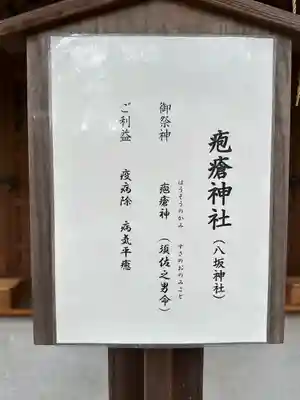 疱瘡神社（八坂神社）
御祭神　疱瘡神（須佐之男命）
ほうそうのかみ　すさのおのみこと
ご利益　疫病除　病気平癒